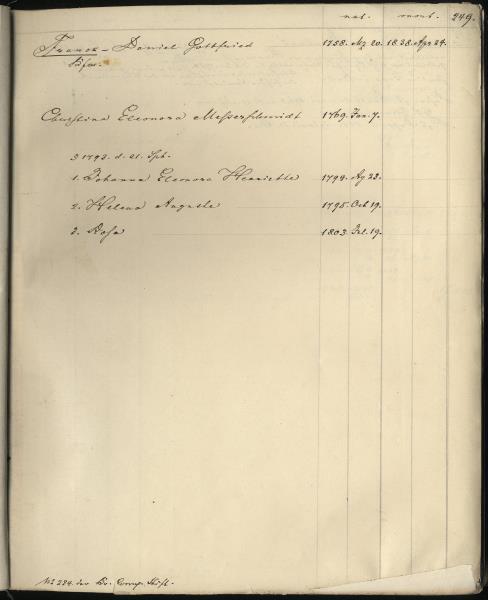 nat. mort. 249.
Franck - Daniel Gottfried 1758. Mz 20. 1838. Apr 24.
Christina Eleonora Messerschmidt 1769. Jan. 7.
1793. d. 21. Sph.
1. Johanna Eleonora Henriette 1794. Ag 23.
2. Helena Auguste 1795. Oct 19.
3. Rosa 1803. Jul. 19.
No 224. der Br. Comp.